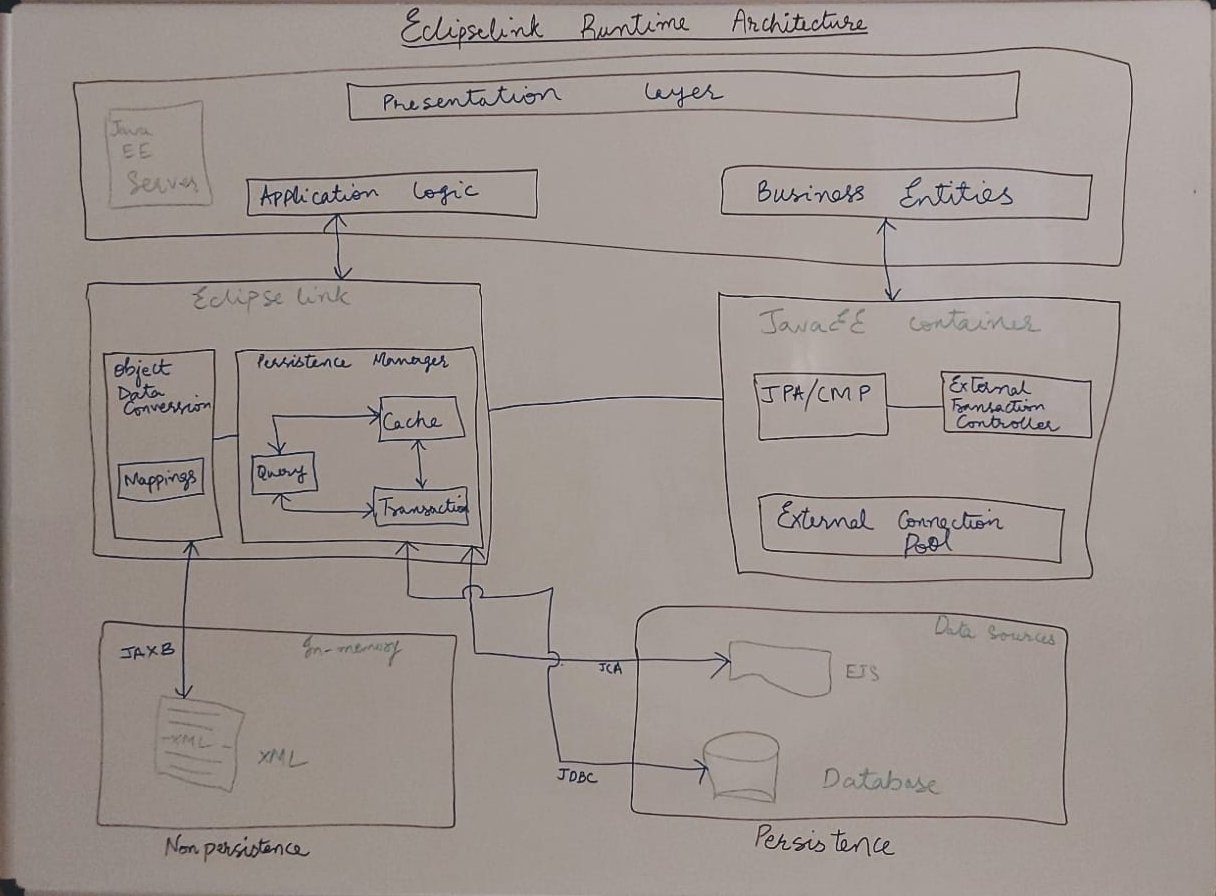 Eclipselink Runtime Architecture
Presentation Layer
Java
EE
Server
Application Logic
Business Entities
Eclipse link
JavaEE container
Object
Data
Conversion
Mappings
Persistence Manager
Cache
Query
Transaction
JPA/CMP
External
Transaction
Controller
External Connection
Pool
JAXB
In-memory
-XML-
XML
Nonpersistence
JCA
JDBC
Data Sources
EIS
Database
Persistence